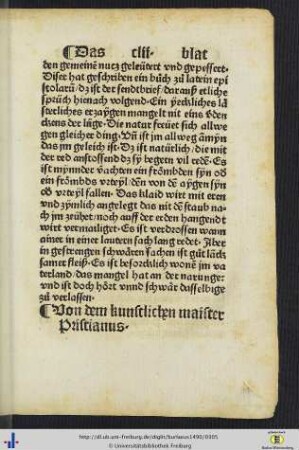 ¶Das clii· blat
den gemeinē nutz geleütert vnd gepessert·
Diser hat geschriben ein bůch zů latein epi
stolarū· dz ist der sendtbrief/darauß etliche
sprüch hienach volgend·Ein yeckliches lä
sterliches erzaÿgen mangelt nit eins
ckens der lüge·Die natur freüet sich allwe
gen gleicher ding·Vñ ist jm allweg ämÿn
das jm geleich ist·Dz ist natürlich/die mit
der red anstossend dz sÿ begern vil redē·Es
ist mÿnnder ein frömbden sÿn ob
ein frömbds vrteÿl dēn von dē aÿgen sÿn
ob vrteÿl fallen·Das klaid wirt mit eren
vnd zÿmlich angelegt das nit dē staub na
ch jm zeühet/noch auff der erden hangendt
wirt vermaliget·Es ist verdrossen wann
ainer in einer lautern sach lang redet·Aber
in gestrengen schwären sachen ist gůt läch
samre fleiß·Es ist besorcklich wonē jm va
terland/das mangel hat an der narunge·
vnd ist doch hört vnnd schwär dasselbige
zů verlassen·
¶Von dem kunstlichen maister
Pristianus·
http://dl.ub.uni-freiburg.de/diglit/burlaeus1490/0305
© Universitätsbibliothek Freiburg